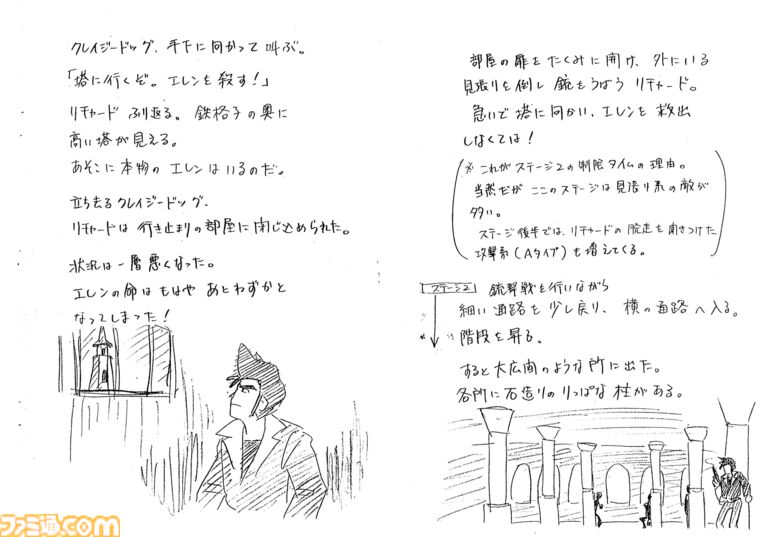 クレイジードッグ、手下に向かって叫ぶ。
「塔に行くぞ。エレンを殺す!」
リチャード ふり返る。鉄格子の奥に
高い塔が見える。
あそこに本物の エレンは いるのだ。
立ち去るクレイジードッグ、
リチャードは 行き止まりの部屋に閉じ込められた。
状況は一層悪くなった。
エレンの命は もはや あとわずかと
なってしまった!
部屋の扉をたくみに開け、外にいる
見張りを倒し 銃をうばう リチャード。
急いで塔に向かい、エレンを 救出
しなくては!
※ これがステージ2の制限タイムの理由。
当然だが ここのステージは見張り系の敵が
多い。
ステージ後半では、リチャードの脱走を聞きつけた
攻撃系(Aタイプ)も増えてくる。
ステージ2 銃撃戦を行いながら
細い通路を少し戻り、横の通路へ入る。
階段を昇る。
すると大広間のような所に出た。
各所に石造りのりっぱな柱がある。
ファミ通.com